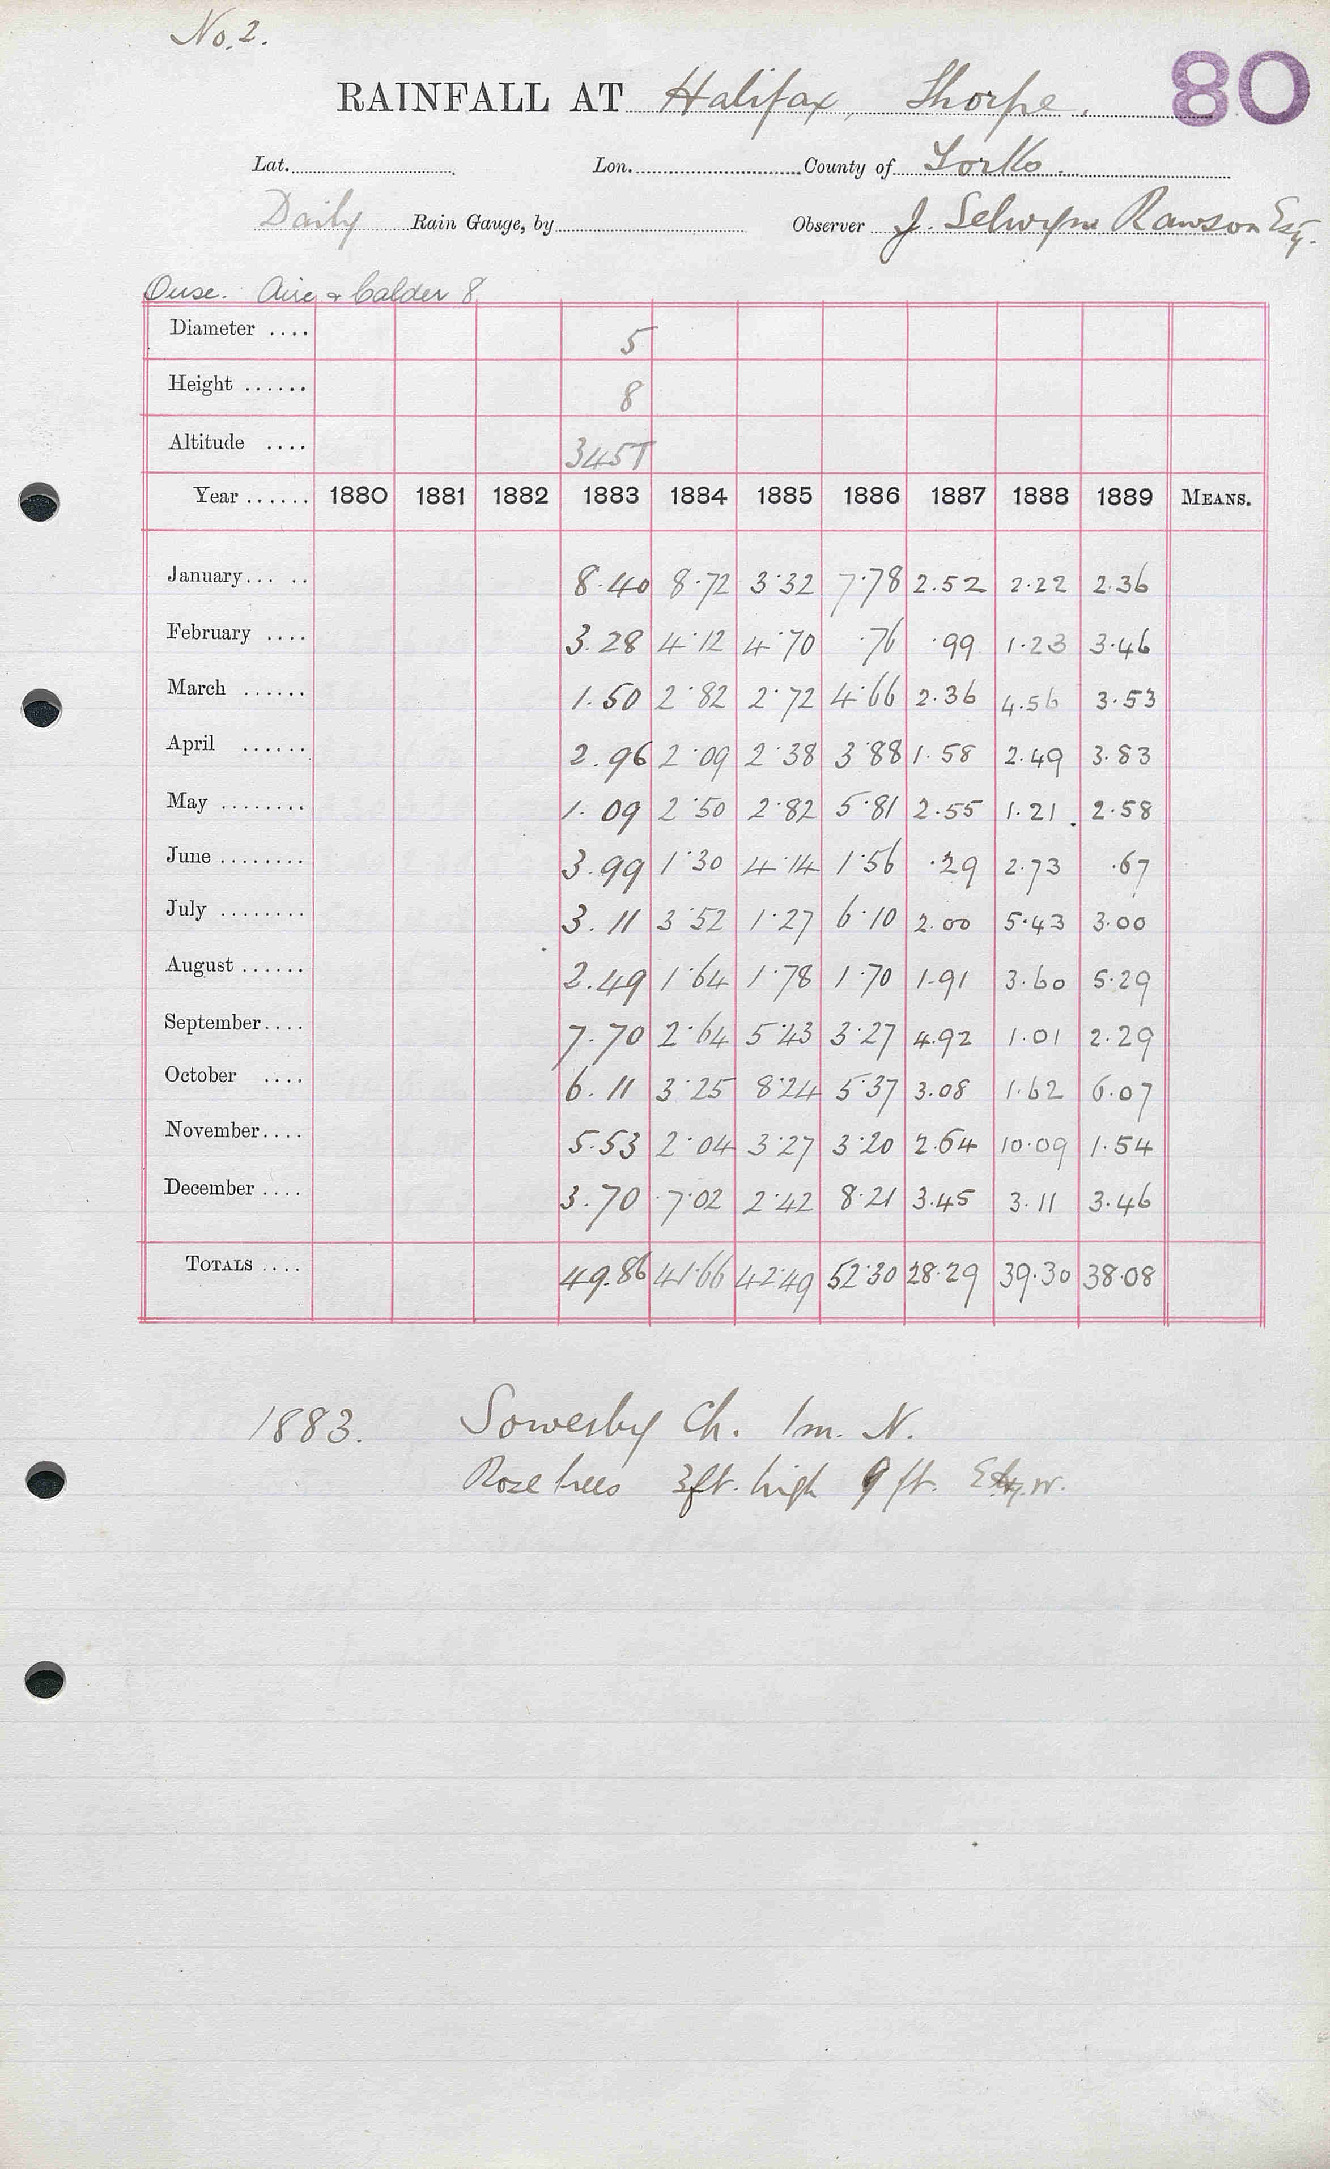 No. 2.
80
RAINFALL AT Halifax, Thorpe.
Lat. Lon. County of Yorks.
Daily Rain Gauge, by Observer J. Selwyn Rawson Esq.
Ouse. Aire & Calder 8
Diameter .... 5
Height ...... 8
Altitude .... 345T
Year ...... 1880 1881 1882 1883 1884 1885 1886 1887 1888 1889 MEANS.
January... .. 8.40 8.72 3.32 7.78 2.52 2.22 2.36
February .... 3.28 4.12 4.70 .76 .99 1.23 3.46
March ...... 1.50 2.82 2.72 4.66 2.36 4.56 3.53
April ...... 2.96 2.09 2.38 3.88 1.58 2.49 3.83
May ........ 1.09 2.50 2.82 5.81 2.55 1.21 2.58
June ........ 3.99 1.30 4.14 1.56 .29 2.73 .67
July ........ 3.11 3.52 1.27 6.10 2.00 5.43 3.00
August ...... 2.49 1.64 1.78 1.70 1.91 3.60 5.29
September.... 7.70 2.64 5.43 3.27 4.92 1.01 2.29
October .... 6.11 3.25 8.24 5.37 3.08 1.62 6.07
November.... 5.53 2.04 3.27 3.20 2.64 10.09 1.54
December .... 3.70 7.02 2.42 8.21 3.45 3.11 3.46
TOTALS .... 49.86 41.66 42.49 52.30 28.29 39.30 38.08
1883. Sowerby Ch. 1m. N.
Rose trees 3ft. high 9 ft.